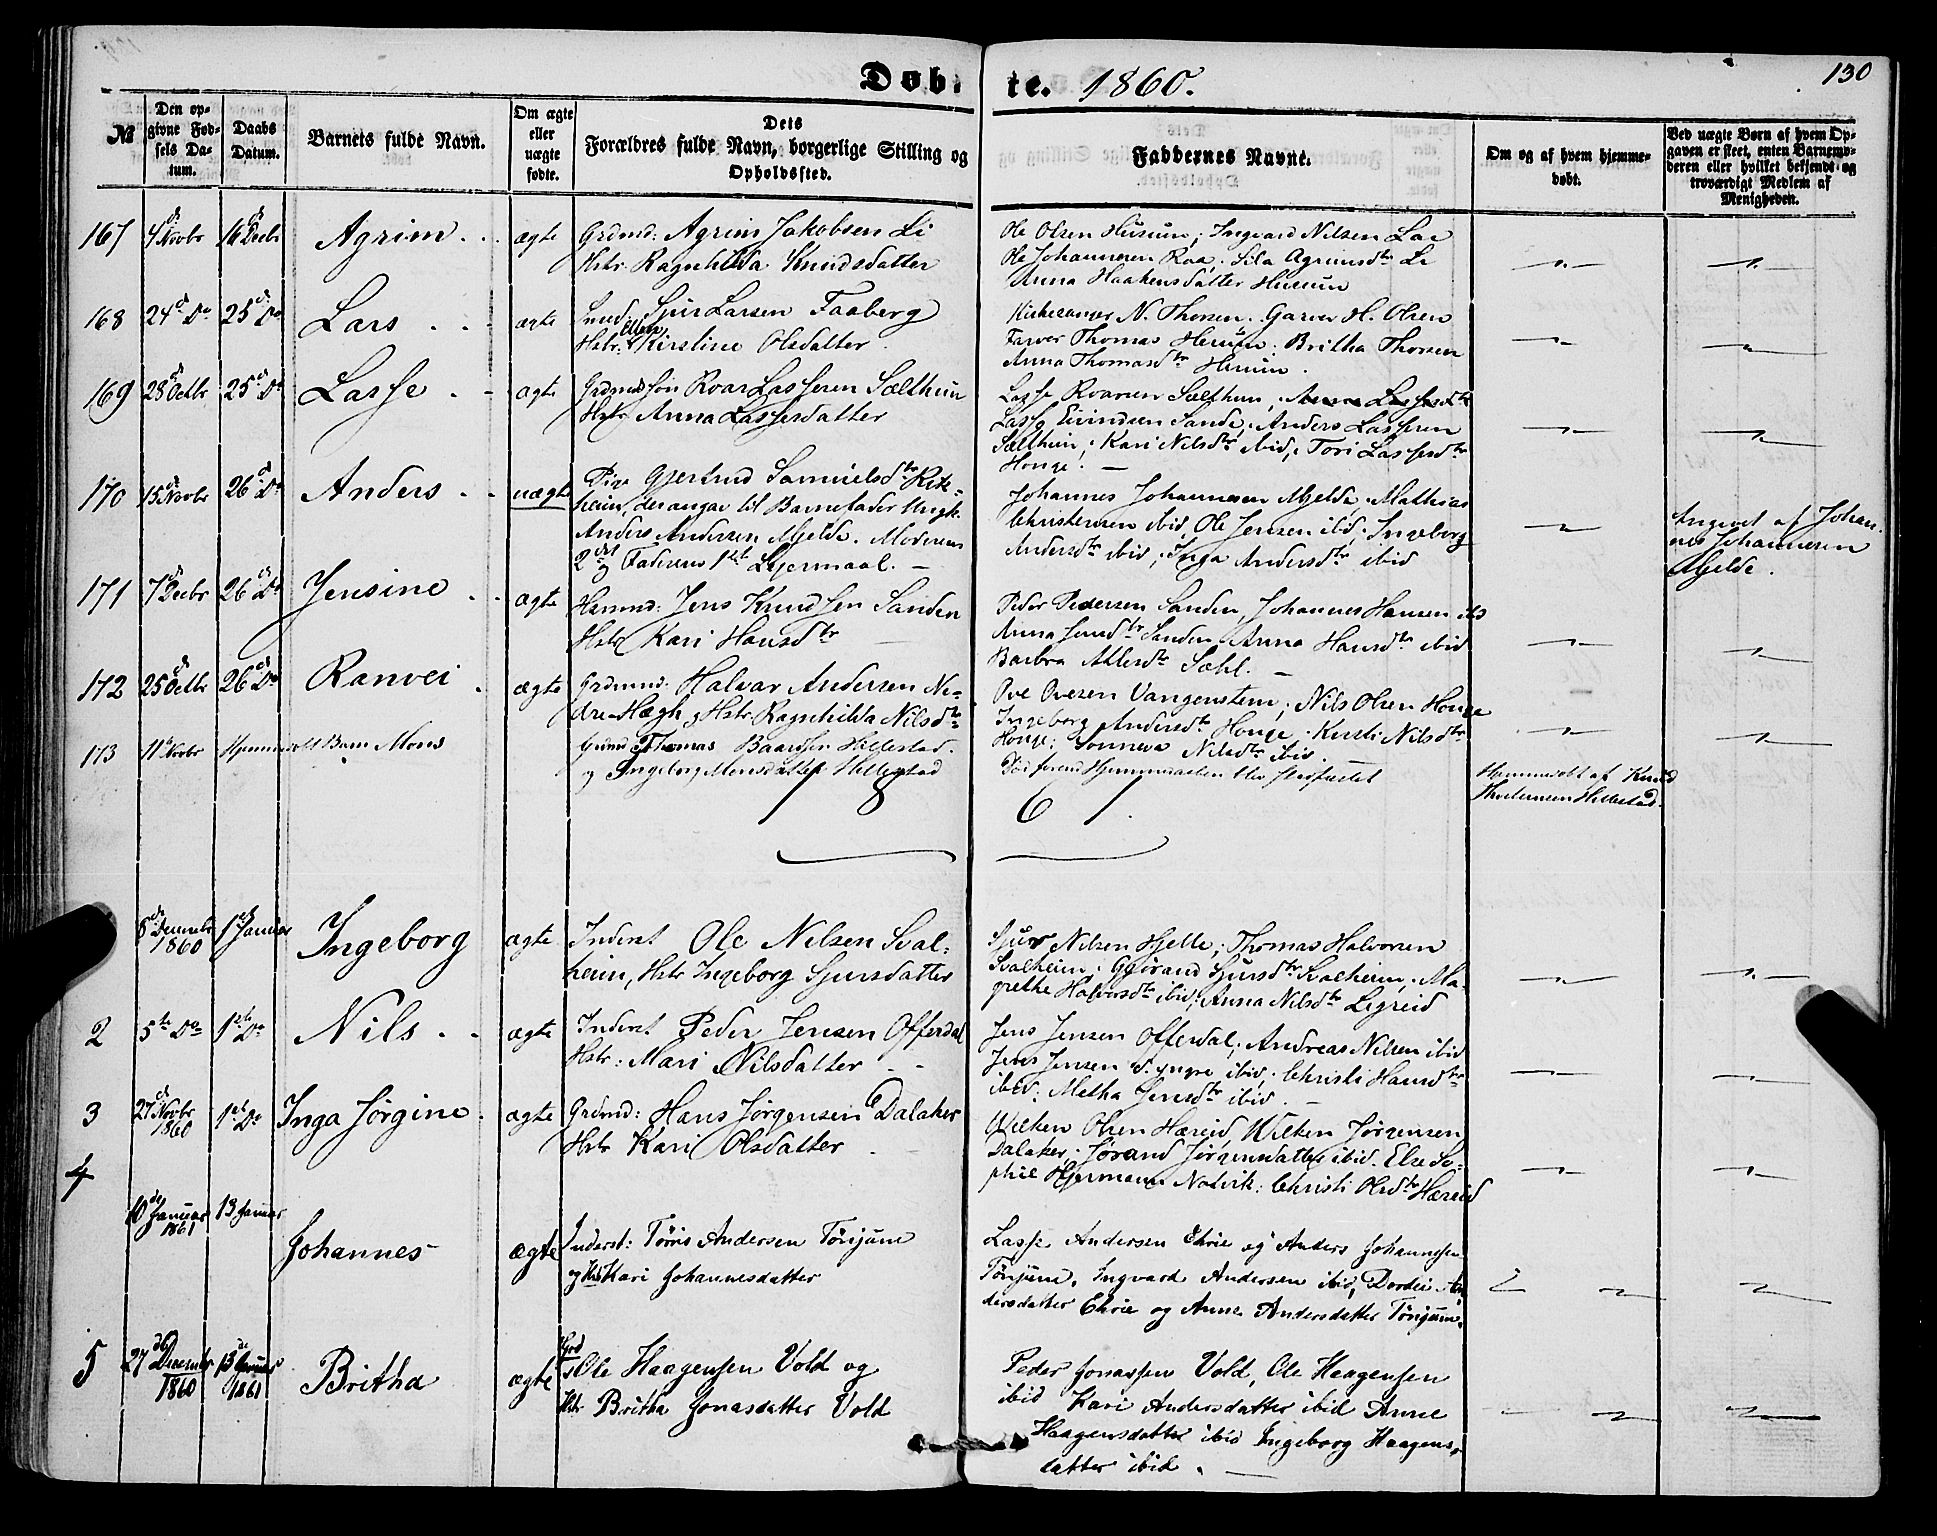 Døbte. 1860.
130
№
Den opgivne Fødsels Datum.
Daabs Datum.
Barnets fulde Navn.
Om ægte eller uægte fødte.
Dets Forældres fulde Navn, borgerlige Stilling og Opholdssted.
Faddernes Navne.
Om og af hvem hjemmedøbt.
Ved uægte Børn af hvem Opgaven er skeet, enten Barnemoderen eller hvilket bekjendt og troværdigt Medlem af Menigheden.
167 4de Novbr 16de Decbr Agrim ægte
Grdmd: Agrim Jakobsen Li
Hstr Ragnhilda Knudsdatter
Ole Olsen Husum; Ingvard Nilsen Lae
Ole Johannesen Roa. Sila Agrimsdtr Li
Anna Haakensdatter Husum
168 24de Do 25de Do Lars ægte
Smed Sjur Larsen Faaberg
Hstr: Ellen Kirstine Olsdatter
Kirkesanger N. Thorsen. Garver H. Olsen
Farver Thomas Herum. Britha Thorsen
Anna Thomasdtr Herum.
169 28de Octbr 25de Do Lasse ægte
Grdmdssøn Roar Lassesen Sælthun
Hstr Anna Lassesdatter
Lasse Roarsen Sælthun, Anna Lassesdtr
Lasse Eivindsen Sande, Anders Lassesen
Sælthun; Kari Nilsdtr ibid; Tori Lassesdtr
Houge.
170 15de Novbr 26de Do Anders uægte
Pige Gjertrud Samuelsdtr Rik=
heim, der angav til Barnefader Ungk.
Anders Andersen Mjelde. Moderens
2det og Faderens 1ste Lejermaal.
Johannes Johannesen Mjelde, Mathias
Christensen ibid, Ole Jensen ibid; Ingeborg
Andersdtr ibid; Inga Andersdtr ibid
Angivet af Johan-
nes Johannesen
Mjelde.
171 7de Decbr 26de Do Jensine ægte
Husmd: Jens Knudsen Sanden
Hstr Kari Hansdtr
Peder Pedersen Sanden, Johannes Hansen ibid
Anna Jensdtr Sanden, Anna Hansdtr ibid
Barbra Atlesdtr Sæhl.
172 25de Octbr 26de Do Ranvei ægte
Grdmd: Halvar Andersen Ne-
dre-Hægh, Hstr. Ragnhilda Nilsdtr
Ove Ovesen Vangenstem; Nils Olsen Houge
Ingeborg Andersdtr Houge. Kirsti Nilsdtr
Houge; Sonneva Nilsdtr ibid.
173 11te Novbr Hjemmedøbt Barn Mons
Grdmd Thomas Baardsen Hillestad
og Ingeborg Monsdatter Hillestad
Død førend Hjemmedaaben blev stadfæstet
Hjemmedøbt af Knud
Thorstensen Hillestad
1 8 6 1.
8de Decembr 1860 1ste Januar Ingeborg ægte
Inderst Ole Nilsen Sval=
heim, Hstr Ingeborg Sjursdatter
Sjur Nilsen Hjelle; Thomas Halvorsen
Svalheim; Gjørand Sjursdtr Svalheim; Ma-
grethe Halvorsdtr ibid; Anna Nilsdtr Ligreid
2 5te Do 1ste Do Nils ægte
Inderst Peder Jensen Offerdal
Hstr: Mari Nilsdatter
Jens Jensen Offerdal; Andreas Nilsen ibid
Jens Jensen d. yngre ibid; Christi Hansdtr
ibid; Metha Jensdtr ibid.
3 27de Novbr 1860 1ste Do Inga Jørgine ægte
Grdmd: Hans Jørgensen Dalaker
Hstr Kari Olsdatter
Wilken Olsen Hæreid, Wilken Jørgensen
Dalaker; Jørand Jørgensdatter ibid. Else So-
phie Hjermann Notvik; Christi Olsdtr Hæreid
4 10de Januar 1861 13 Januar Johannes ægte
Inderst: Tørris Andersen Tønjum
og Hstr Kari Johannesdatter
Lasse Andersen Ehrie og Anders Johannesen
Tønjum, Ingvard Andersen ibid, Dordei An-
dersdatter Ehrie og Anne Andersdatter Tønjum.
5 27de Decembr 1860 13de Januar 1861 Britha ægte
Grd Ole Haagensen Vold og
Hstr Britha Jonasdatter Vold
Peder Jonassen Vold, Ole Haagensen
ibid Kari Andersdatter ibid Anne
Haagensdatter ibid Ingeborg Haagens-
datter ibid.